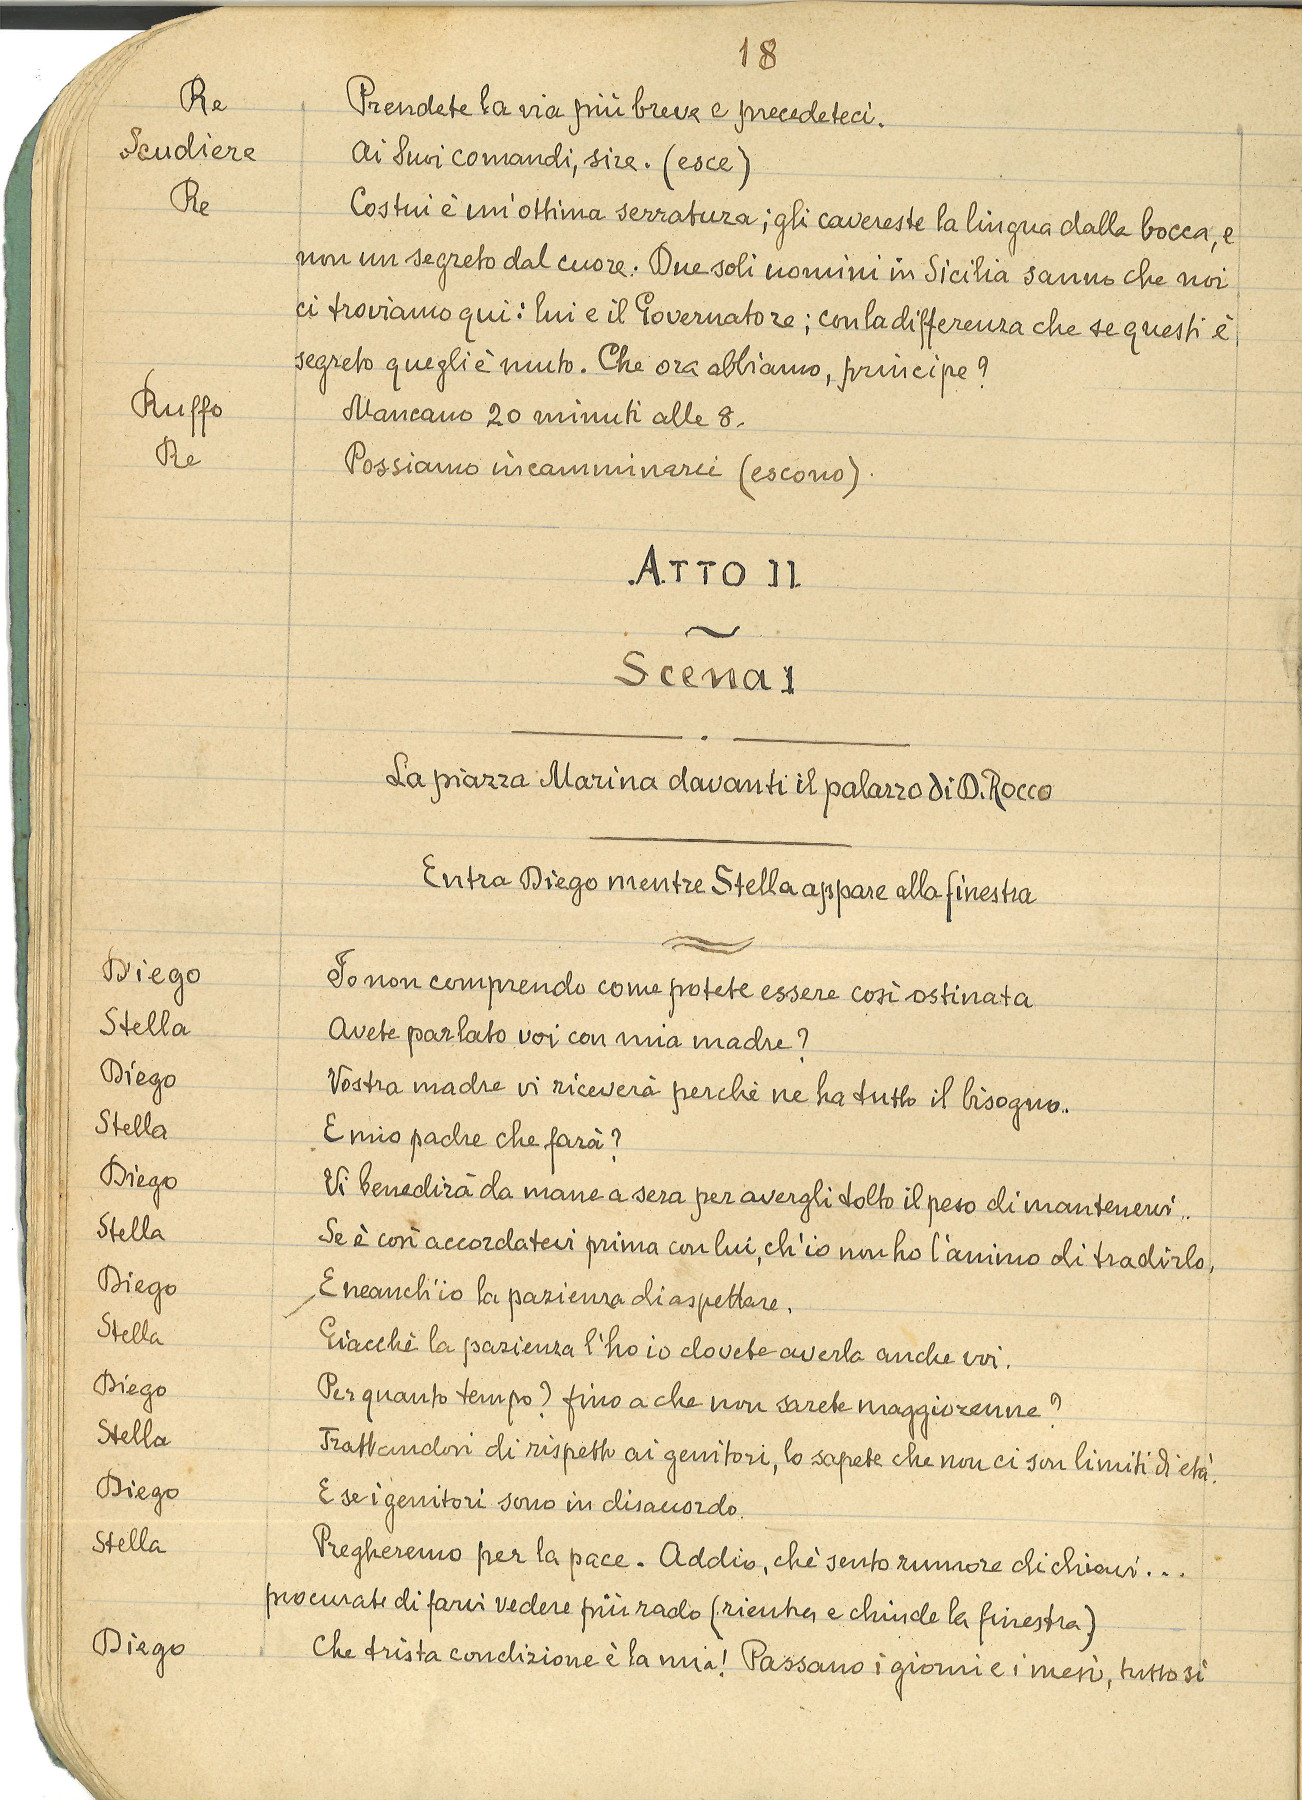 18
Re Prendete la via più breve e precedeteci.
Scudiere Ai Suoi comandi, sire. (esce)
Re Costui è un'ottima serratura; gli cavereste la lingua dalla bocca, e
non un segreto dal cuore. Due soli uomini in Sicilia sanno che noi
ci troviamo qui: lui e il Governatore; con la differenza che se questi è
segreto quegli è muto. Che ora abbiamo, principe?
Ruffo Mancano 20 minuti alle 8.
Re Possiamo incamminarci (escono).
ATTO II
Scena I
La piazza Marina davanti il palazzo di D. Rocco
Entra Diego mentre Stella appare alla finestra
Diego Io non comprendo come potete essere così ostinata
Stella Avete parlato voi con mia madre?
Diego Vostra madre vi riceverà perchè ne ha tutto il bisogno.
Stella E mio padre che farà?
Diego Vi benedirà da mane a sera per avergli tolto il peso di mantenervi..
Stella Se è così accordatevi prima con lui, ch'io non ho l'animo di tradirlo,
Diego E neanch'io la pazienza di aspettare.
Stella Giacchè la pazienza l'ho io dovete averla anche voi.
Diego Per quanto tempo? fino a che non sarete maggiorenne?
Stella Trattandosi di rispetto ai genitori, lo sapete che non ci son limiti di età.
Diego E se i genitori sono in disaccordo.
Stella Pregheremo per la pace. Addio, chè sento rumore di chiavi...
procurate di farvi vedere più rado (rientra e chiude la finestra)
Diego Che trista condizione è la mia! Passano i giorni e i mesi, tutto si